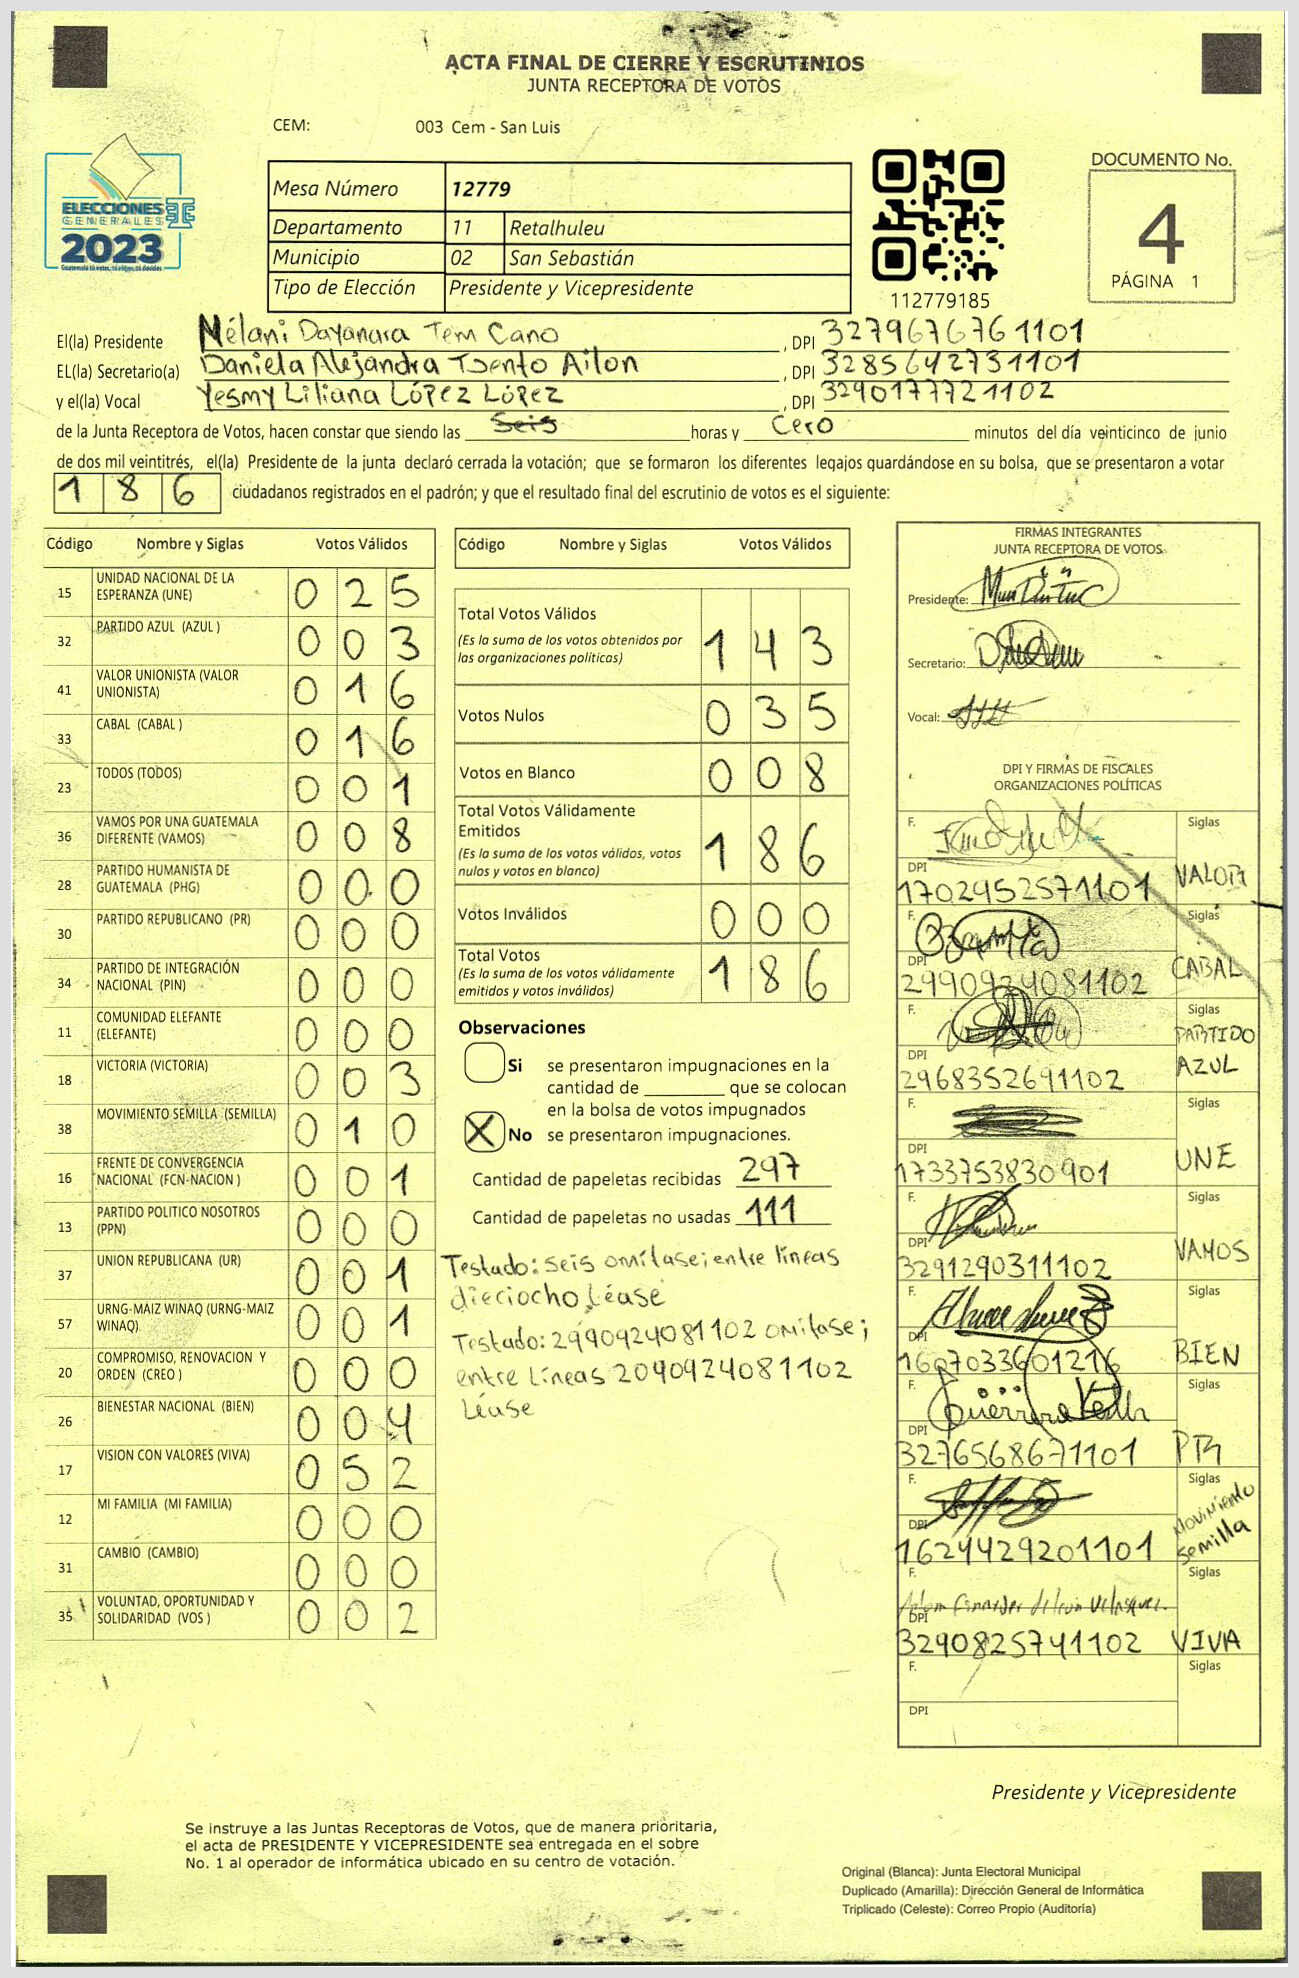 ACTA FINAL DE CIERRE Y ESCRUTINIOS
JUNTA RECEPTORA DE VOTOS
CEM: 003 Cem - San Luis
ELECCIONES
GENERALES
2023
Mesa Número 12779
Departamento 11 Retalhuleu
Municipio 02 San Sebastián
Tipo de Elección Presidente y Vicepresidente
112779185
DOCUMENTO No.
4
PÁGINA 1
El(la) Presidente Mélani Dayanara Tem Cano, DPI 3279676761101
EL(la) Secretario(a) Daniela Alejandra Tsento Ailon, DPI 3285642731101
y el(la) Vocal Yesmy Liliana López López, DPI 3290177721102
de la Junta Receptora de Votos, hacen constar que siendo las Seis horas y Cero minutos del día veinticinco de junio
de dos mil veintitrés, el(la) Presidente de la junta declaró cerrada la votación; que se formaron los diferentes legajos guardándose en su bolsa, que se presentaron a votar
186 ciudadanos registrados en el padrón; y que el resultado final del escrutinio de votos es el siguiente:
Código Nombre y Siglas Votos Válidos
15 UNIDAD NACIONAL DE LA ESPERANZA (UNE) 025
32 PARTIDO AZUL (AZUL ) 003
41 VALOR UNIONISTA (VALOR UNIONISTA) 016
33 CABAL (CABAL ) 016
23 TODOS (TODOS) 001
36 VAMOS POR UNA GUATEMALA DIFERENTE (VAMOS) 008
28 PARTIDO HUMANISTA DE GUATEMALA (PHG) 000
30 PARTIDO REPUBLICANO (PR) 000
34 PARTIDO DE INTEGRACIÓN NACIONAL (PIN) 000
11 COMUNIDAD ELEFANTE (ELEFANTE) 000
18 VICTORIA (VICTORIA) 003
38 MOVIMIENTO SEMILLA (SEMILLA) 010
16 FRENTE DE CONVERGENCIA NACIONAL (FCN-NACION ) 001
13 PARTIDO POLITICO NOSOTROS (PPN) 000
37 UNION REPUBLICANA (UR) 001
57 URNG-MAIZ WINAQ (URNG-MAIZ WINAQ) 001
20 COMPROMISO, RENOVACION Y ORDEN (CREO ) 000
26 BIENESTAR NACIONAL (BIEN) 004
17 VISION CON VALORES (VIVA) 052
12 MI FAMILIA (MI FAMILIA) 000
31 CAMBIO (CAMBIO) 000
35 VOLUNTAD, OPORTUNIDAD Y SOLIDARIDAD (VOS ) 002
Código Nombre y Siglas Votos Válidos
Total Votos Válidos 143
(Es la suma de los votos obtenidos por
las organizaciones políticas)
Votos Nulos 035
Votos en Blanco 008
Total Votos Válidamente
Emitidos 186
(Es la suma de los votos válidos, votos
nulos y votos en blanco)
Votos Inválidos 000
Total Votos 186
(Es la suma de los votos válidamente
emitidos y votos inválidos)
Observaciones
Si se presentaron impugnaciones en la
cantidad de ________ que se colocan
en la bolsa de votos impugnados
X No se presentaron impugnaciones.
Cantidad de papeletas recibidas 297
Cantidad de papeletas no usadas 111
Testado: seis omitase; entre líneas
dieciocho, Léase
Testado: 2990924081102 omitase;
entre Líneas 2090924081102
Léase
FIRMAS INTEGRANTES
JUNTA RECEPTORA DE VOTOS
Presidente:
Secretario:
Vocal:
DPI Y FIRMAS DE FISCALES
ORGANIZACIONES POLÍTICAS
F. Siglas
DPI 1702952571101 VALOR
F. Siglas
DPI 2990924081102 CABAL
F. Siglas
DPI 2968352691102 PARTIDO AZUL
F. Siglas
DPI 1733753830901 UNE
F. Siglas
DPI 3291290311102 VAMOS
F. Siglas
DPI 1607033601216 BIEN
F. Siglas
DPI 3276568671101 PR
F. Siglas
DPI 1624429201101 Movimiento Semilla
F. Siglas
DPI 3290825741102 VIVA
F. Siglas
DPI
Presidente y Vicepresidente
Se instruye a las Juntas Receptoras de Votos, que de manera prioritaria,
el acta de PRESIDENTE Y VICEPRESIDENTE sea entregada en el sobre
No. 1 al operador de informática ubicado en su centro de votación.
Original (Blanca): Junta Electoral Municipal
Duplicado (Amarilla): Dirección General de Informática
Triplicado (Celeste): Correo Propio (Auditoría)